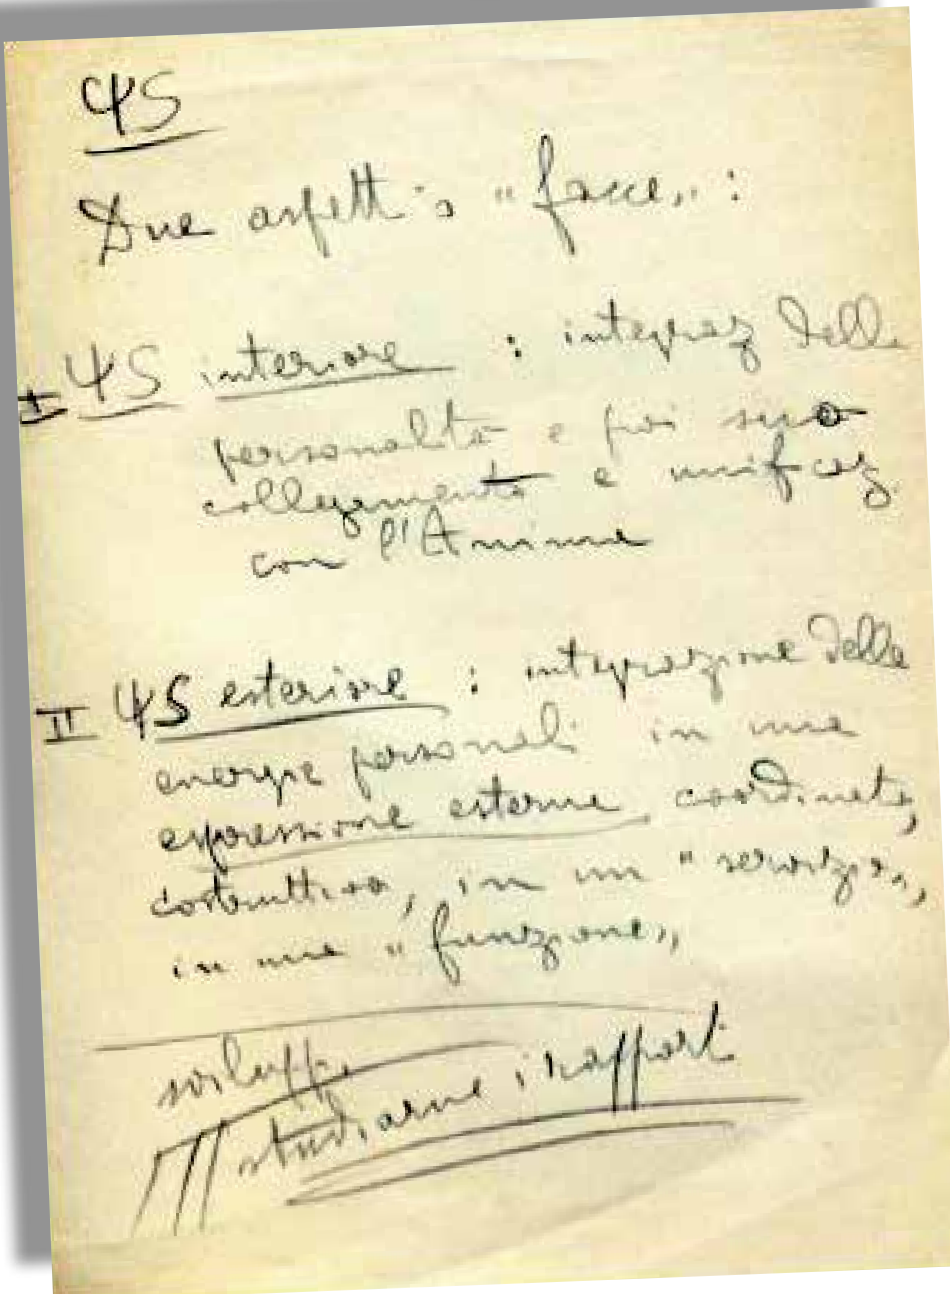 ΨS
Due aspetti o "facce":
I ΨS interiore : integraz della
personalità e poi suo
collegamento e unificaz.
con l'Anima
II ΨS esteriore : integrazione delle
energie personali in una
espressione esterna, coordinata,
costruttiva, in un "servizio",
in una "funzione"
sviluppi
studiarne i rapporti